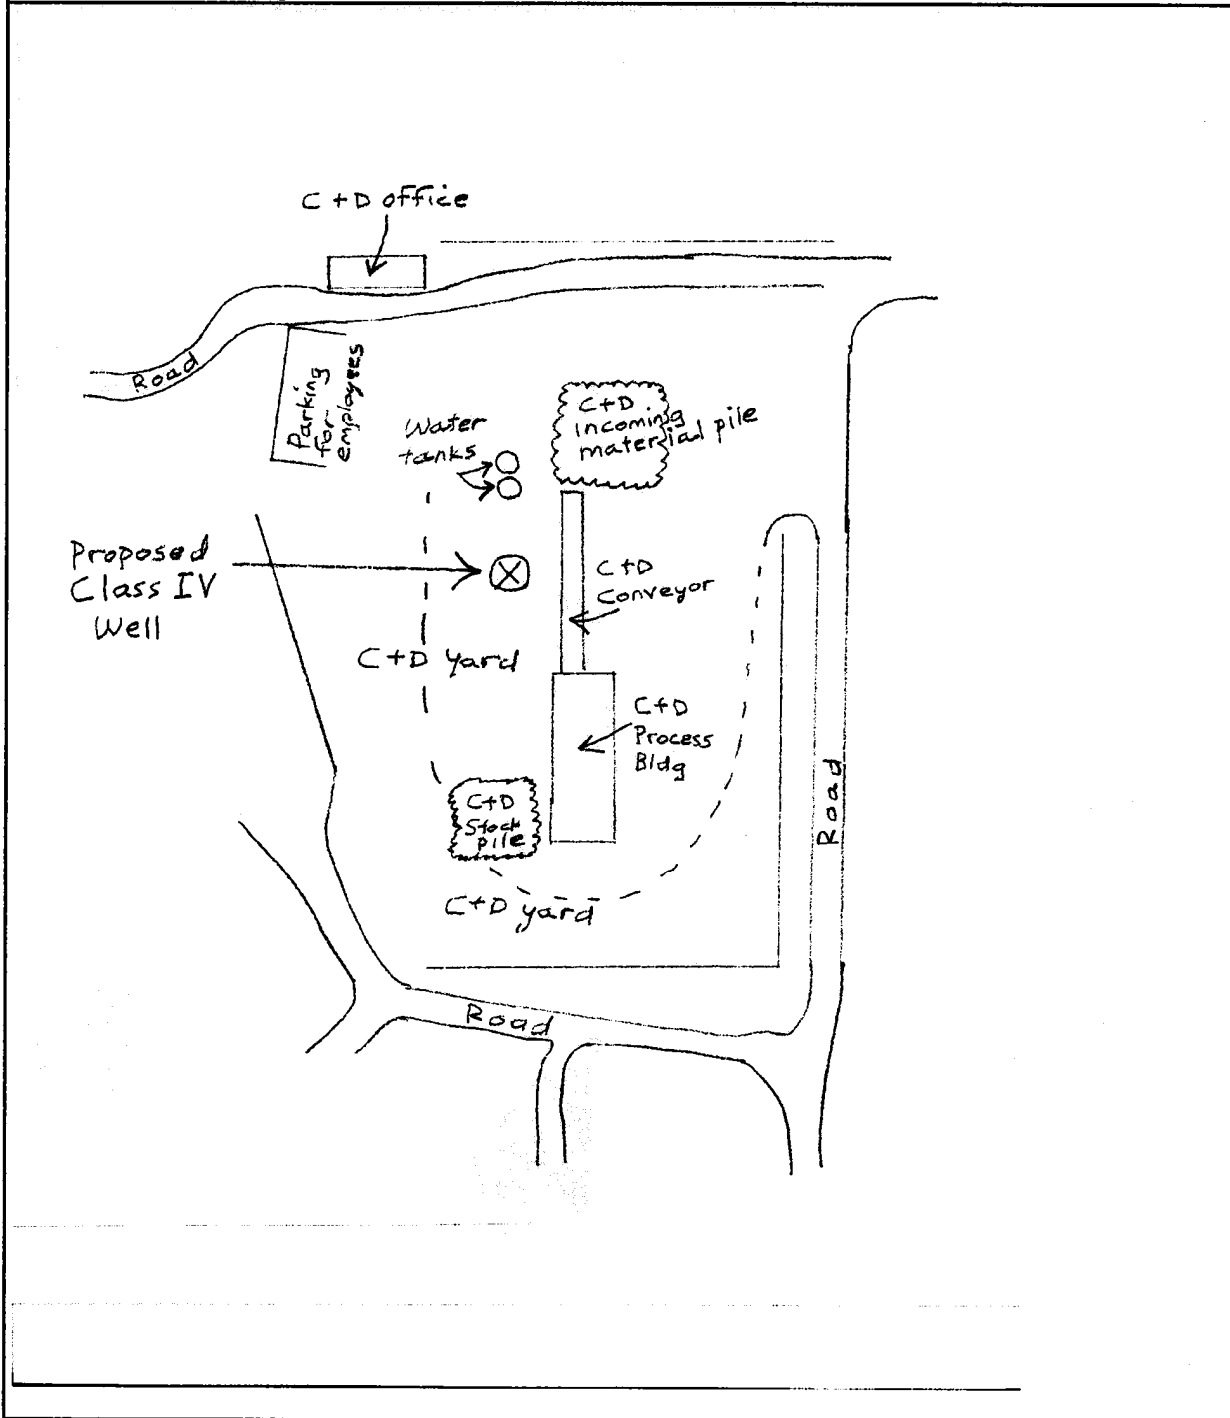 C+D office
Road
Parking
for
employees
Water
tanks
C+D
incoming
material pile
Proposed
Class IV
Well
C+D
Conveyor
C+D yard
C+D
Process
Bldg
C+D
Stock
pile
Road
C+D yard
Road